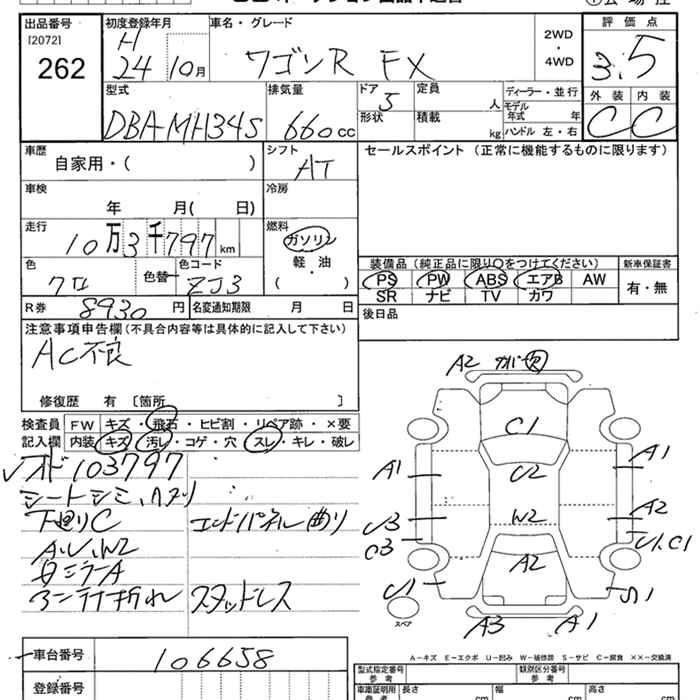 出品番号
[2072]
262
初度登録年月
H
24 10月
車名・グレード
ワゴンR FX
2WD
・
4WD
評価点
3.5
外装 内装
C C
型式
DBA-MH34S
排気量
660cc
ドア
5
形状
定員
人
積載
kg
ディーラー・並行
モデル
年式 年
ハンドル 左・右
車歴
自家用・( )
シフト
AT
セールスポイント (正常に機能するものに限ります)
車検
年 月( 日)
冷房
走行
10万3千797km
燃料
ガソリン
軽・油
( )
色
クロ
色替
色コード
ZJ3
装備品 (純正品に限り○をつけてください)
PS PW ABS エアB AW
SR ナビ TV カワ
新車保証書
有・無
R券 8930円
名変通知期限 月 日
後日品
注意事項申告欄(不具合内容等は具体的に記入して下さい)
AC不良
修復歴 有 〔箇所 〕
検査員
記入欄
FW キズ・飛石・ヒビ割・リペア跡・×要
内装 キズ・汚レ・コゲ・穴・スレ・キレ・破レ
オド103797
シートシミ、ヘタリ
下廻りC
エンドパネル曲り
A.U.W2
スタッドレス
A2 ガバ欠
C1
U2
W2
A2
A1
U3
C3
U1
A1
A2
U1.C1
S1
A3
A1
スペア
A-キズ E-エクボ U-凹み W-補修跡 S-サビ C-腐食 ××-交換済
車台番号
106658
登録番号
型式指定番号
参考
類別区分番号
参考
車庫証明用
参考
長さ
cm
幅
cm
高さ
cm